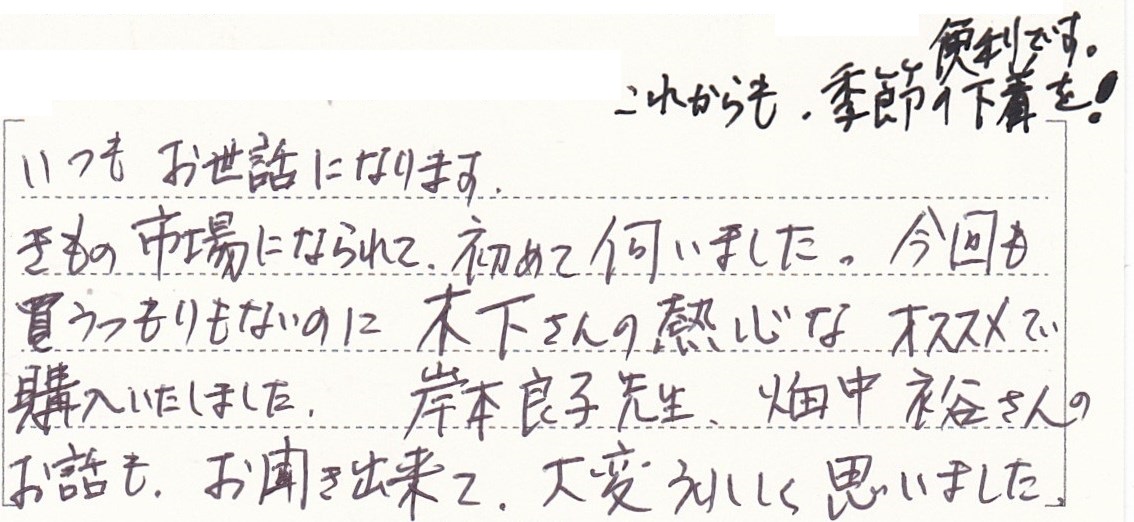 いつもお世話になります.
きもの市場になられて、初めて伺いました。今回も
買うつもりもないのに 木下さんの熱心な オススメで
購入いたしました. 岸本良子先生、畑中 裕さんの
お話も、お聞き出来て、大変うれしく思いました。
これからも、季節の下着を!
便利です。